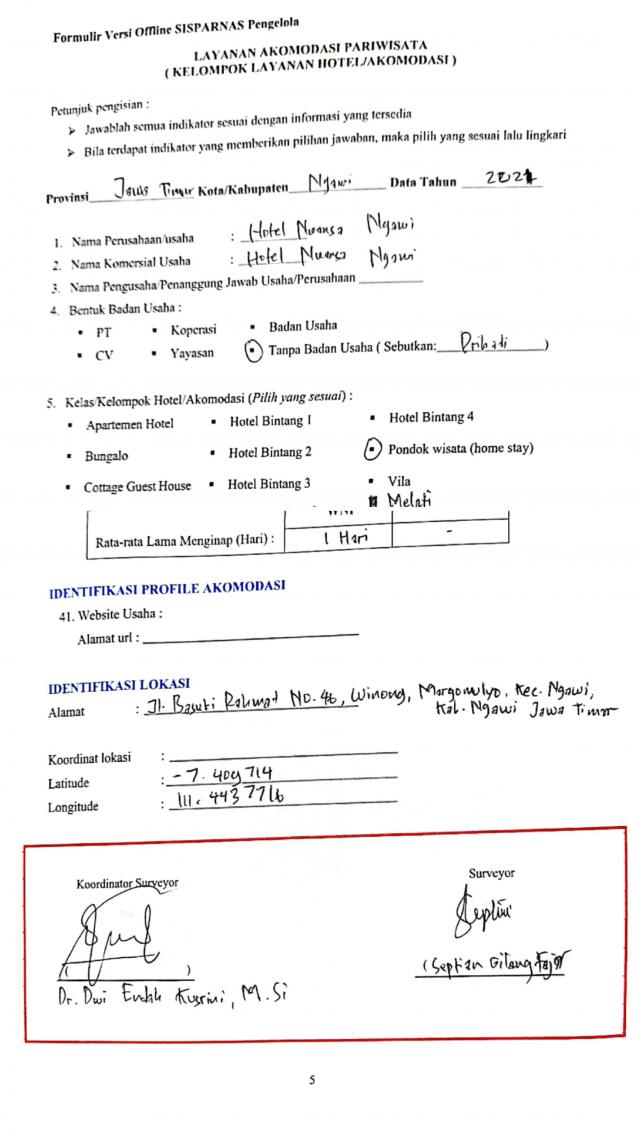 Formulir Versi Offline SISPARNAS Pengelola
LAYANAN AKOMODASI PARIWISATA
( KELOMPOK LAYANAN HOTEL/AKOMODASI )
Petunjuk pengisian :
➤ Jawablah semua indikator sesuai dengan informasi yang tersedia
➤ Bila terdapat indikator yang memberikan pilihan jawaban, maka pilih yang sesuai lalu lingkari
Provinsi Jawa Timur Kota/Kabupaten Ngawi Data Tahun 2021
1. Nama Perusahaan/usaha : Hotel Nuansa Ngawi
2. Nama Komersial Usaha : Hotel Nuansa Ngawi
3. Nama Pengusaha/Penanggung Jawab Usaha/Perusahaan
4. Bentuk Badan Usaha :
▪ PT ▪ Koperasi ▪ Badan Usaha
▪ CV ▪ Yayasan ▪ Tanpa Badan Usaha ( Sebutkan: Pribadi )
5. Kelas/Kelompok Hotel/Akomodasi (Pilih yang sesuai) :
▪ Apartemen Hotel ▪ Hotel Bintang 1 ▪ Hotel Bintang 4
▪ Bungalo ▪ Hotel Bintang 2 ▪ Pondok wisata (home stay)
▪ Cottage Guest House ▪ Hotel Bintang 3 ▪ Vila
▪ Melati
Rata-rata Lama Menginap (Hari) : 1 Hari -
IDENTIFIKASI PROFILE AKOMODASI
41. Website Usaha :
Alamat url :
IDENTIFIKASI LOKASI
Alamat : Jl. Basuki Rahmat No. 46, Winong, Margomulyo, Kec. Ngawi,
Kab. Ngawi Jawa Timur
Koordinat lokasi :
Latitude : -7.409714
Longitude : 111.4437716
Koordinator Surveyor Surveyor
Septian
( ) (Septian Gilang Fajar
Dr. Dwi Endah Kusrini, M.Si
5